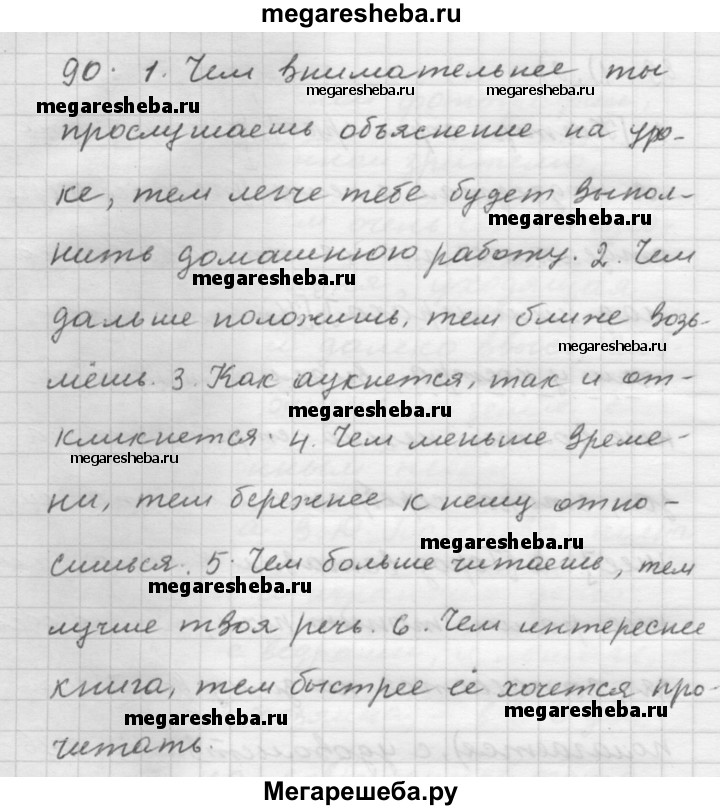 megaresheba.ru
90. 1. Чем внимательнее ты
megaresheba.ru
megaresheba.ru
megaresheba.ru
прослушаешь объяснение на уро-
ке, тем легче тебе будет выпол-
megaresheba.ru
нить домашнюю работу. 2. Чем
megaresheba.ru
дальше положишь, тем ближе возь-
megaresheba.ru
мёшь. 3. Как аукнется, так и от-
megaresheba.ru
кликнется. 4. Чем меньше време-
megaresheba.ru
ни, тем бережнее к нему отно-
megaresheba.ru
сишься. 5. Чем больше читаешь, тем
megaresheba.ru
лучше твоя речь. 6. Чем интереснее
книга, тем быстрее её хочется про-
megaresheba.ru
megaresheba.ru
читать.
Мегарешеба.ру